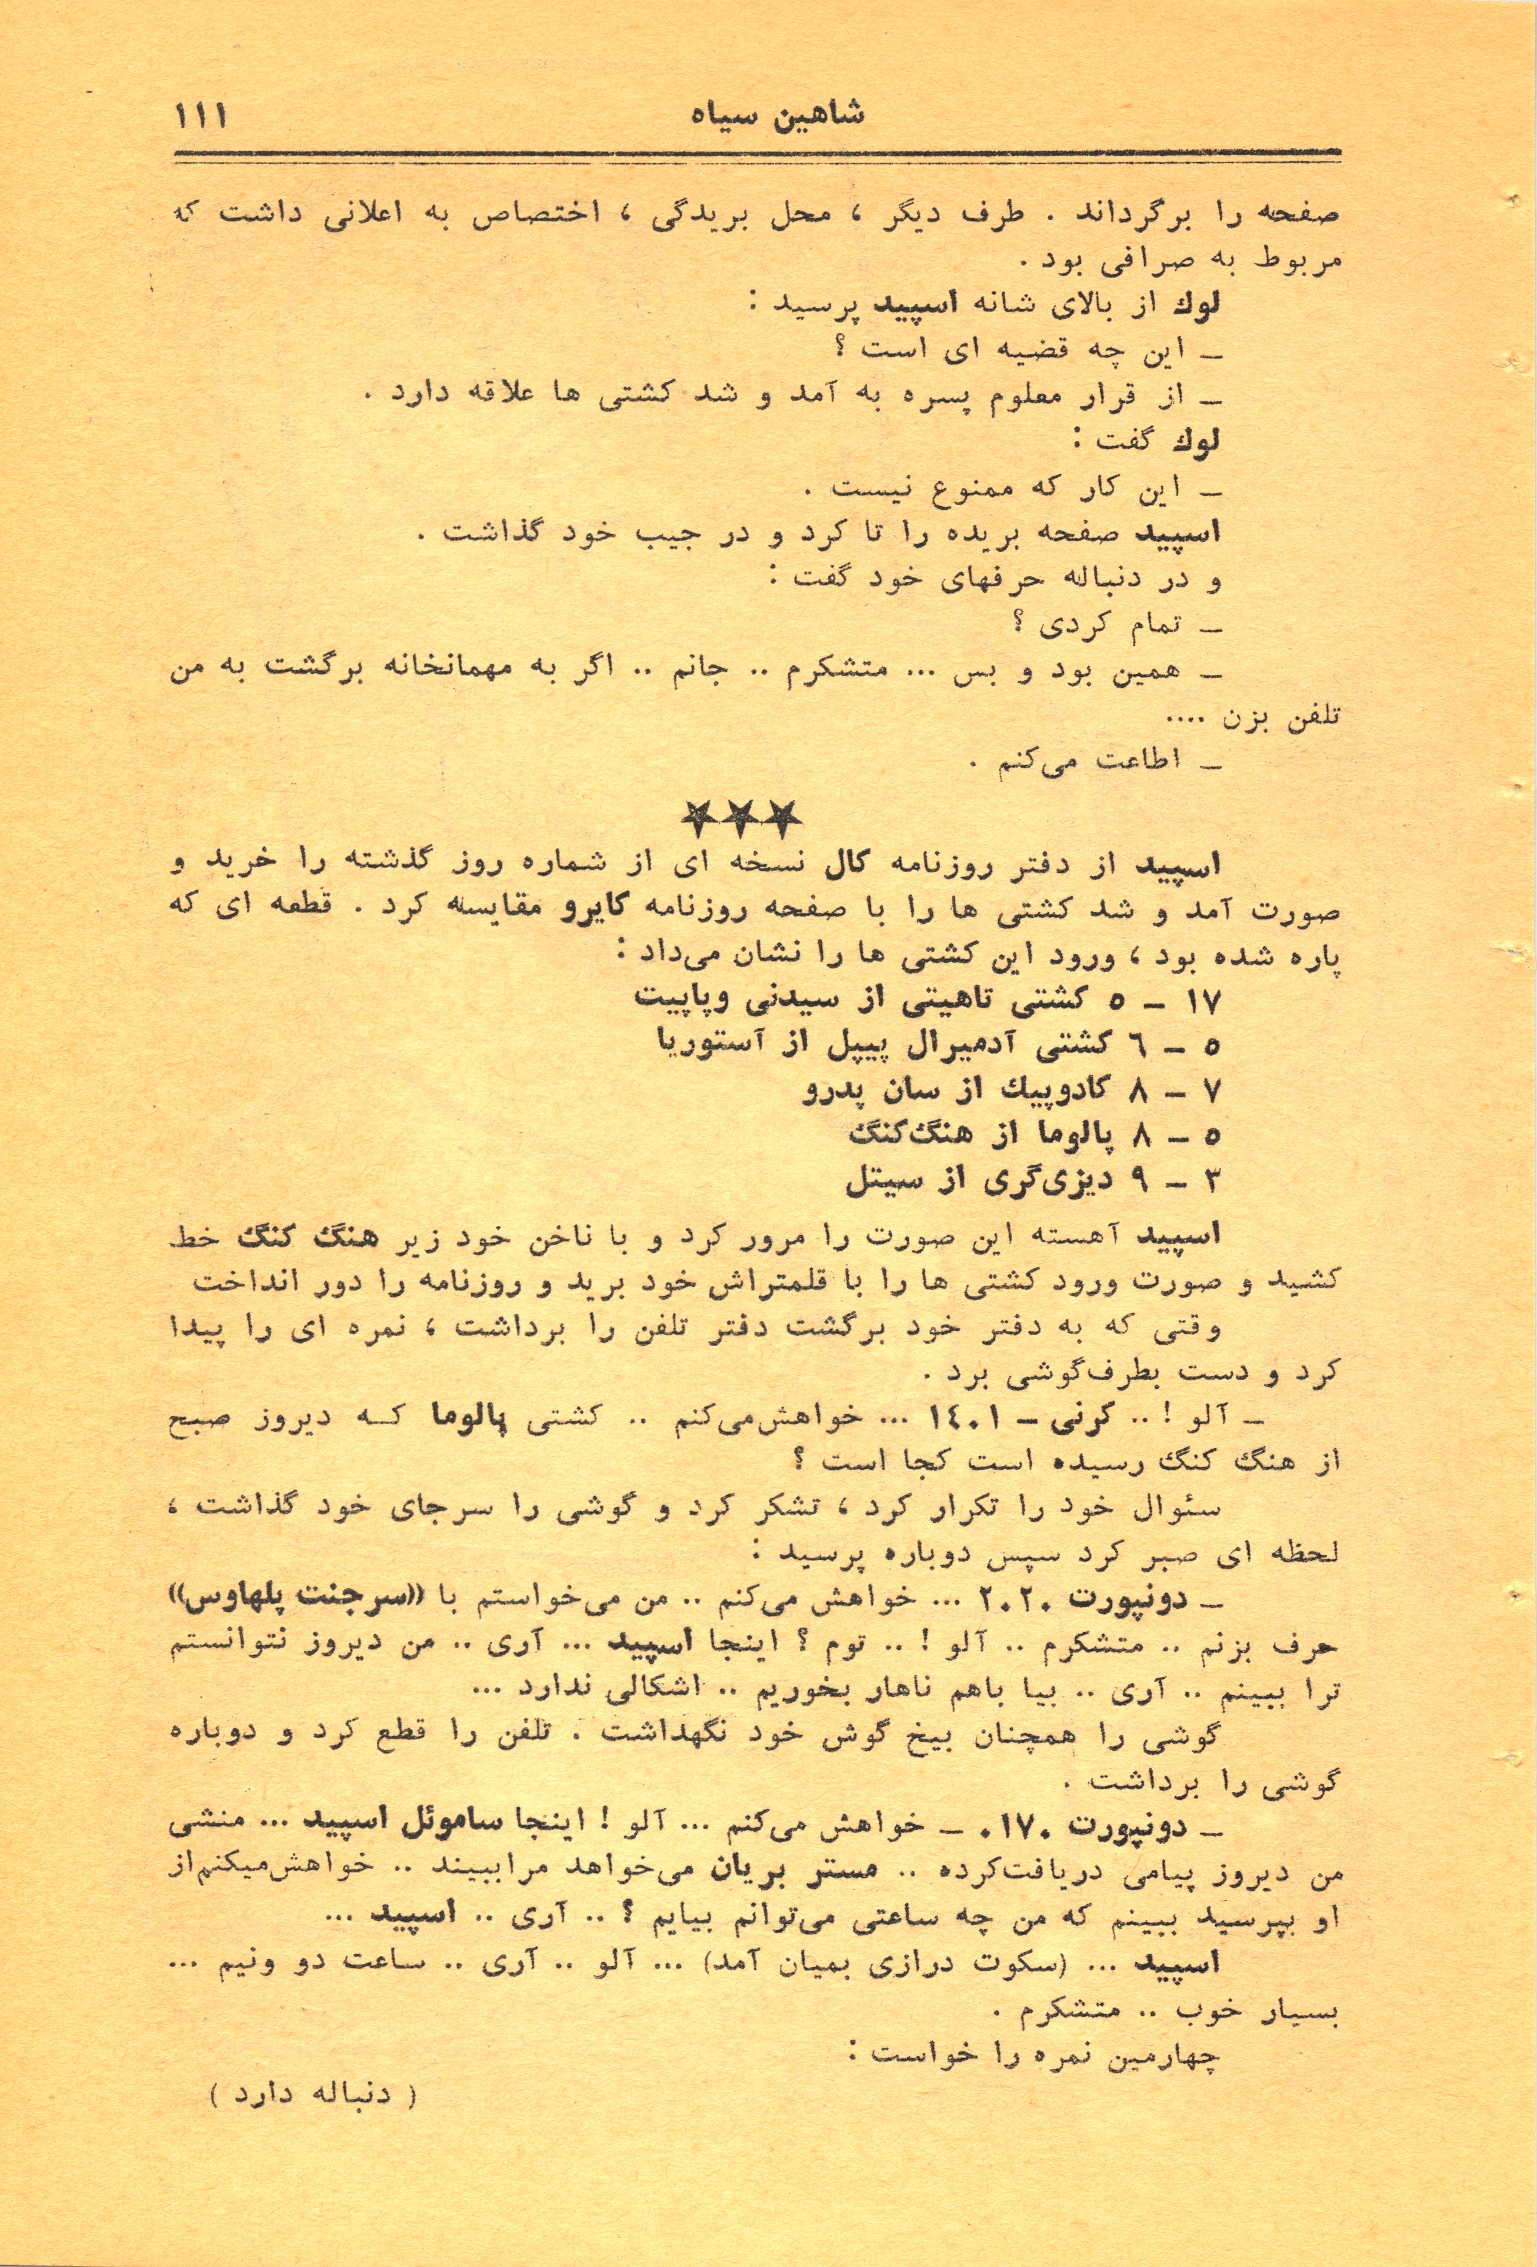 شاهین سیاه
۱۱۱
صفحه را برگرداند . طرف دیگر ، محل بریدگی ، اختصاص به اعلانی داشت که
مربوط به صرافی بود .
لوك از بالای شانه اسپید پرسید :
ـ این چه قضیه ای است ؟
ـ از قرار معلوم پسره به آمد و شد کشتی ها علاقه دارد .
لوك گفت :
ـ این کار که ممنوع نیست .
اسپید صفحه بریده را تا کرد و در جیب خود گذاشت .
و در دنباله حرفهای خود گفت :
ـ تمام کردی ؟
ـ همین بود و بس ... متشکرم .. جانم .. اگر به مهمانخانه برگشت به من
تلفن بزن ....
ـ اطاعت می‌کنم .
★★★
اسپید از دفتر روزنامه کال نسخه ای از شماره روز گذشته را خرید و
صورت آمد و شد کشتی ها را با صفحه روزنامه کایرو مقایسه کرد . قطعه ای که
پاره شده بود ، ورود این کشتی ها را نشان می‌داد :
۱۷ ـ ۵ کشتی تاهیتی از سیدنی وپاپیت
۵ ـ ٦ کشتی آدمیرال پیپل از آستوریا
۷ ـ ۸ کادوپیك از سان پدرو
۵ ـ ۸ پالوما از هنگ‌کنگ
۳ ـ ۹ دیزی‌گری از سیتل
اسپید آهسته این صورت را مرور کرد و با ناخن خود زیر هنگ کنگ خط
کشید و صورت ورود کشتی ها را با قلمتراش خود برید و روزنامه را دور انداخت
وقتی که به دفتر خود برگشت دفتر تلفن را برداشت ، نمره ای را پیدا
کرد و دست بطرف‌گوشی برد .
ـ آلو ! .. کرنی ـ ۱٤۰۱ ... خواهش‌می‌کنم .. کشتی پالوما کـه دیروز صبح
از هنگ کنگ رسیده است کجا است ؟
سئوال خود را تکرار کرد ، تشکر کرد و گوشی را سرجای خود گذاشت ،
لحظه ای صبر کرد سپس دوباره پرسید :
ـ دونپورت ۲۰۲۰ ... خواهش می‌کنم .. من می‌خواستم با ((سرجنت پلهاوس))
حرف بزنم .. متشکرم .. آلو ! .. توم ؟ اینجا اسپید ... آری .. من دیروز نتوانستم
ترا ببینم .. آری .. بیا باهم ناهار بخوریم .. اشکالی ندارد ...
گوشی را همچنان بیخ گوش خود نگهداشت . تلفن را قطع کرد و دوباره
گوشی را برداشت .
ـ دونپورت ۰۱۷۰ ـ خواهش می‌کنم ... آلو ! اینجا ساموئل اسپید ... منشی
من دیروز پیامی دریافت‌کرده .. مستر بریان می‌خواهد مراببیند .. خواهش‌میکنم‌از
او بپرسید ببینم که من چه ساعتی می‌توانم بیایم ؟ .. آری .. اسپید ...
اسپید ... (سکوت درازی بمیان آمد) ... آلو .. آری .. ساعت دو ونیم ...
بسیار خوب .. متشکرم .
چهارمین نمره را خواست :
( دنباله دارد )